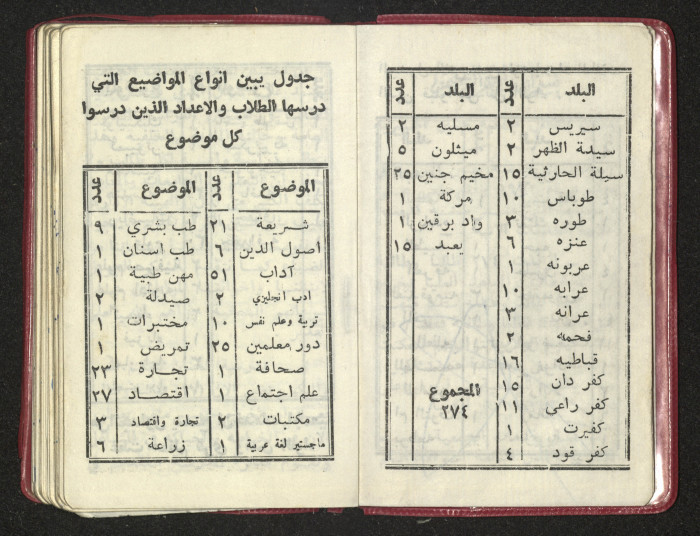 البلد عدد البلد عدد
سيريس ٢ مسليه ٢
سيدة الظهر ٢ ميثلون ٥
سيلة الحارثية ١٥ مخيم جنين ٢٥
طوباس ١٠ مركة ١
طوره ٣ واد برقين ١
عنزه ٦ يعبد ١٥
عربونه ١
عرابه ١٠
عرانه ٣
فحمه ٢
قباطيه ١٦
كفر دان ١٥ المجموع
كفر راعي ١١ ٢٧٤
كفيرت ١
كفر قود ٤
جدول يبين انواع المواضيع التي
درسها الطلاب والاعداد الذين درسوا
كل موضوع
الموضوع عدد الموضوع عدد
شريعة ٢١ طب بشري ٩
أصول الدين ٦ طب اسنان ١
آداب ٥١ مهن طبية ١
ادب انجليزي ٢ صيدلة ٢
تربية وعلم نفس ١٠ مختبرات ١
دور معلمين ٢٥ تمريض ١
صحافة ١ تجارة ٢٣
علم اجتماع ١ اقتصاد ٢٧
مكتبات ٢ تجارة واقتصاد ٣
ماجستير لغة عربية ١ زراعة ٦